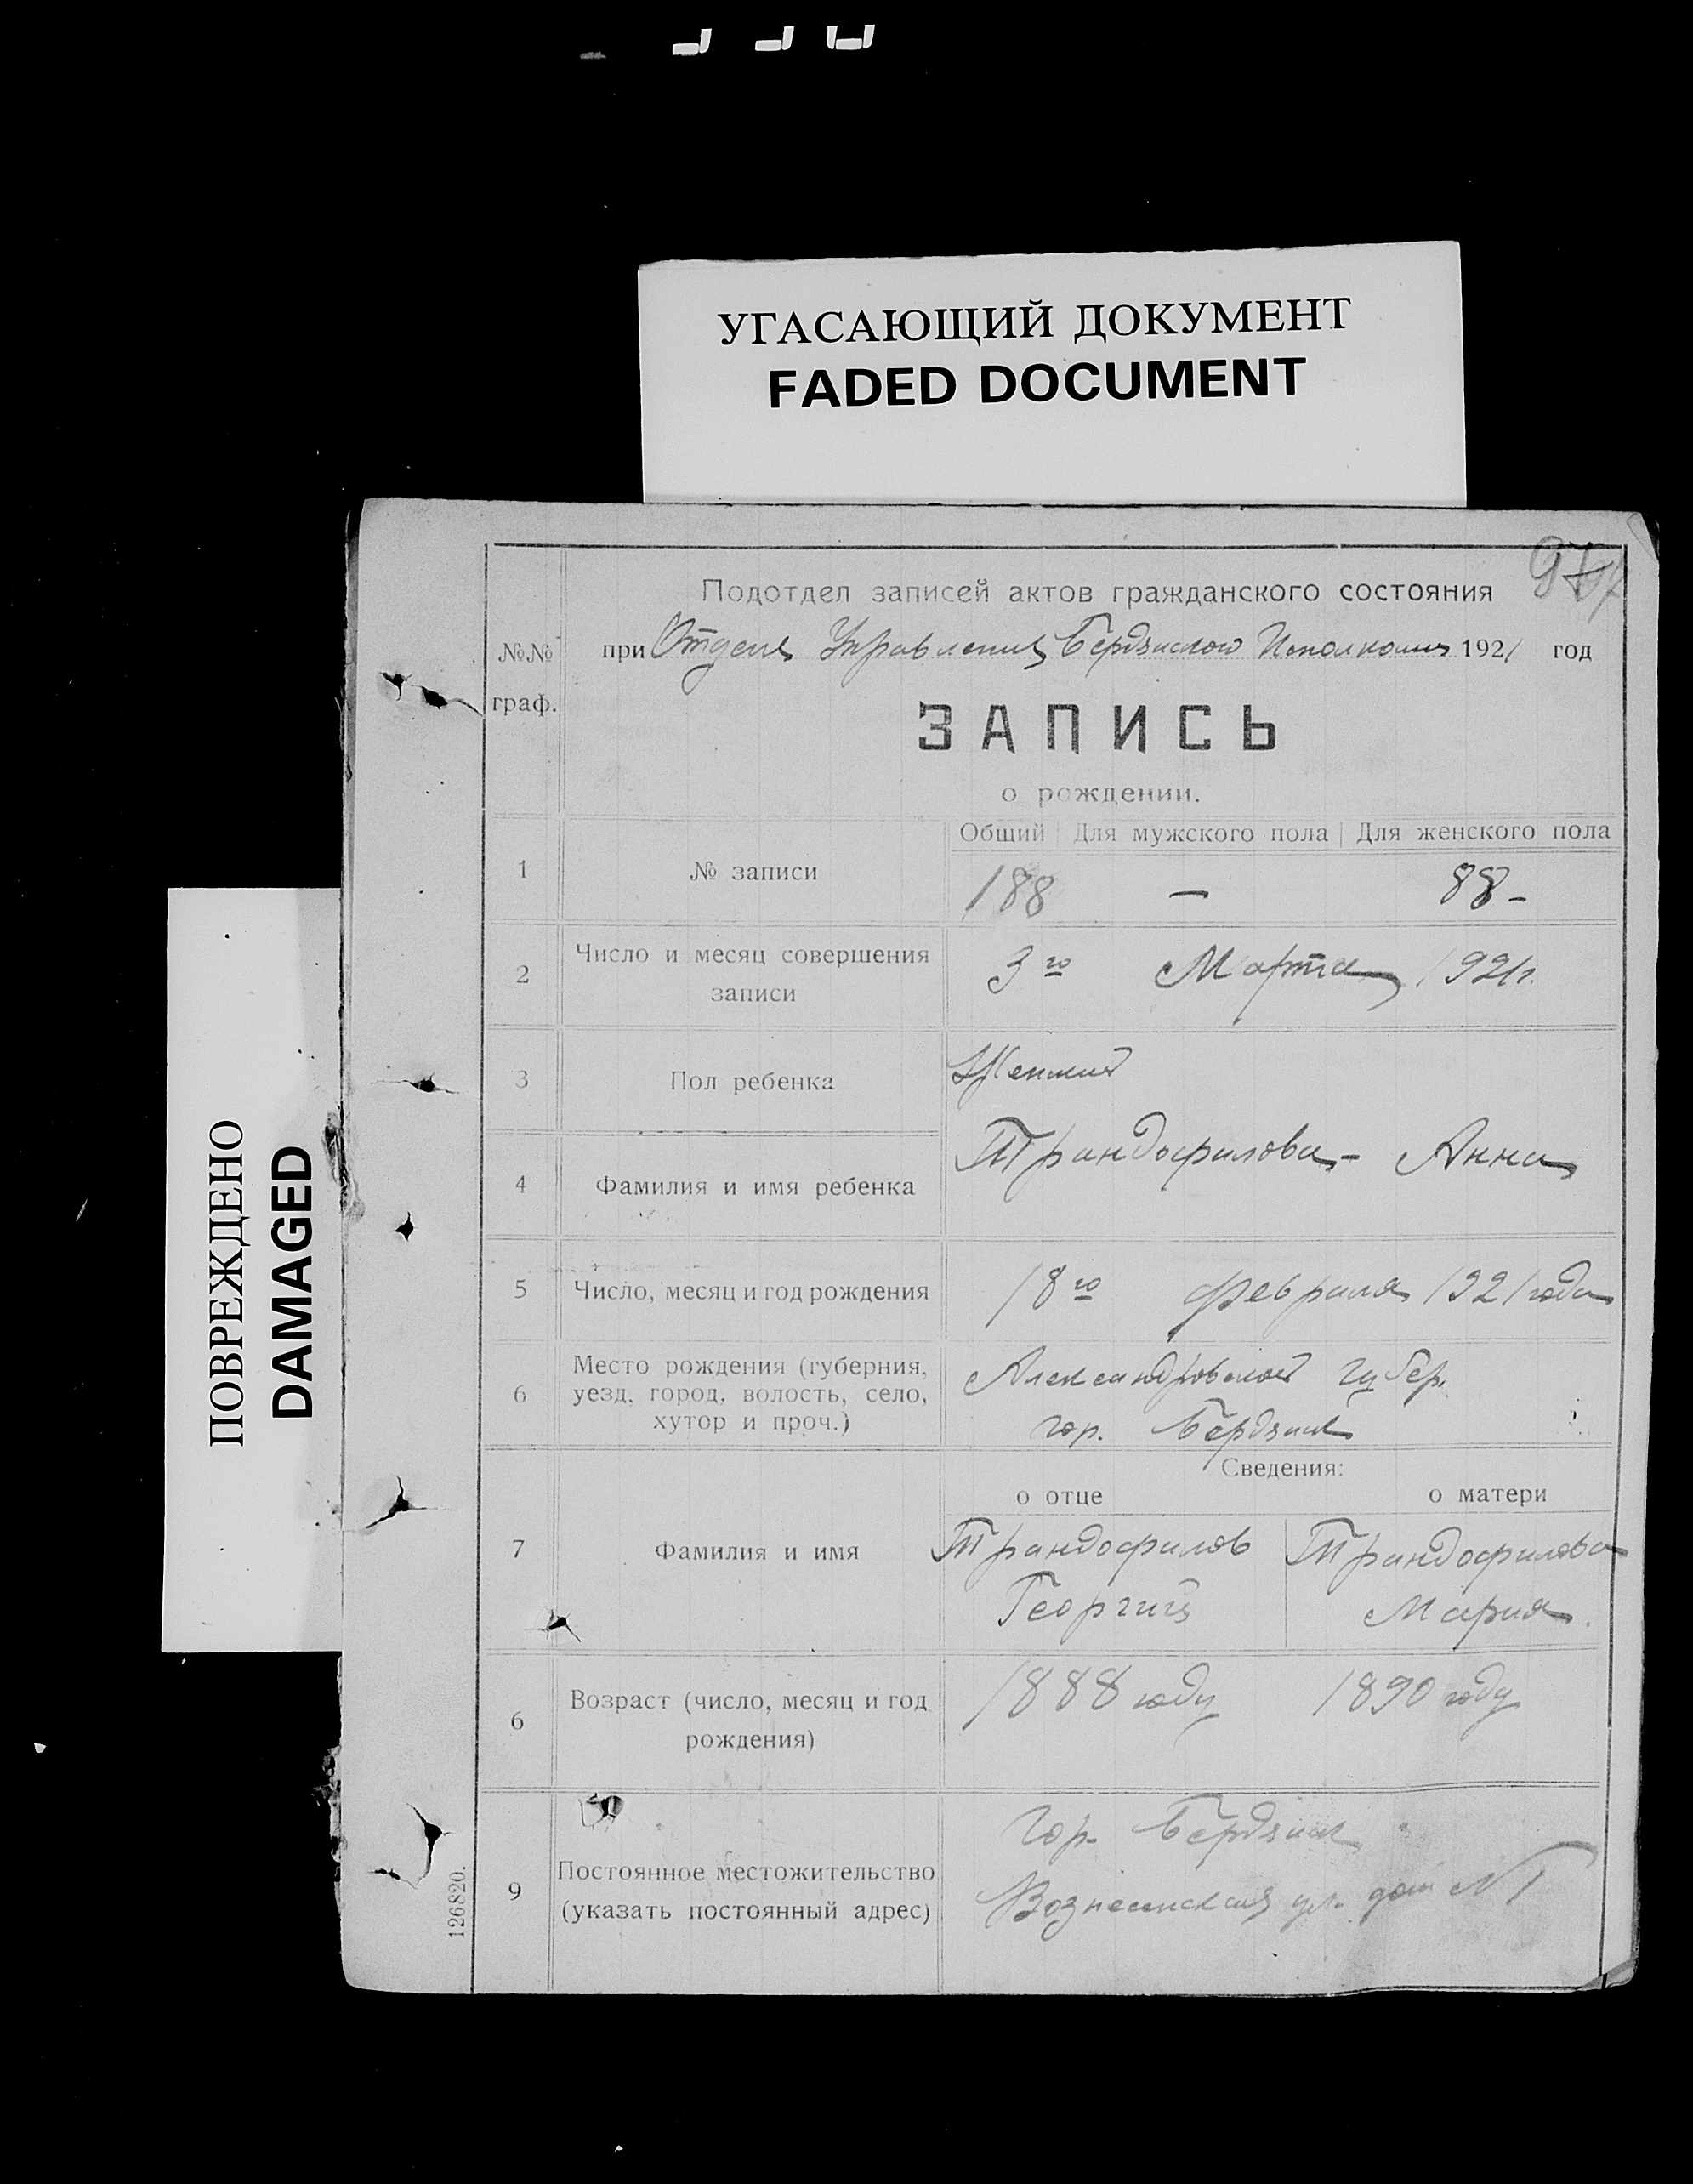 УГАСАЮЩИЙ ДОКУМЕНТ
FADED DOCUMENT
ПОВРЕЖДЕНО
DAMAGED
Подотдел записей актов гражданского состояния
№№ граф.
при Отделе Управления Бердянского Исполкома 1921 год
ЗАПИСЬ
о рождении.
Общий Для мужского пола Для женского пола
1 № записи 188 — 88 -
2 Число и месяц совершения записи 3го Марта 1921г.
3 Пол ребенка Женский
4 Фамилия и имя ребенка Трандофилова - Анна
5 Число, месяц и год рождения 18го февраля 1921 года
6 Место рождения (губерния, уезд, город, волость, село, хутор и проч.) Александровской губер.
гор. Бердянск
Сведения:
о отце о матери
7 Фамилия и имя Трандофилов Трандофилова
Георгий Мария.
6 Возраст (число, месяц и год рождения) 1888 году 1890 году
9 Постоянное местожительство (указать постоянный адрес) гор. Бердянск
Вознесенская ул. дом № 1
126820.